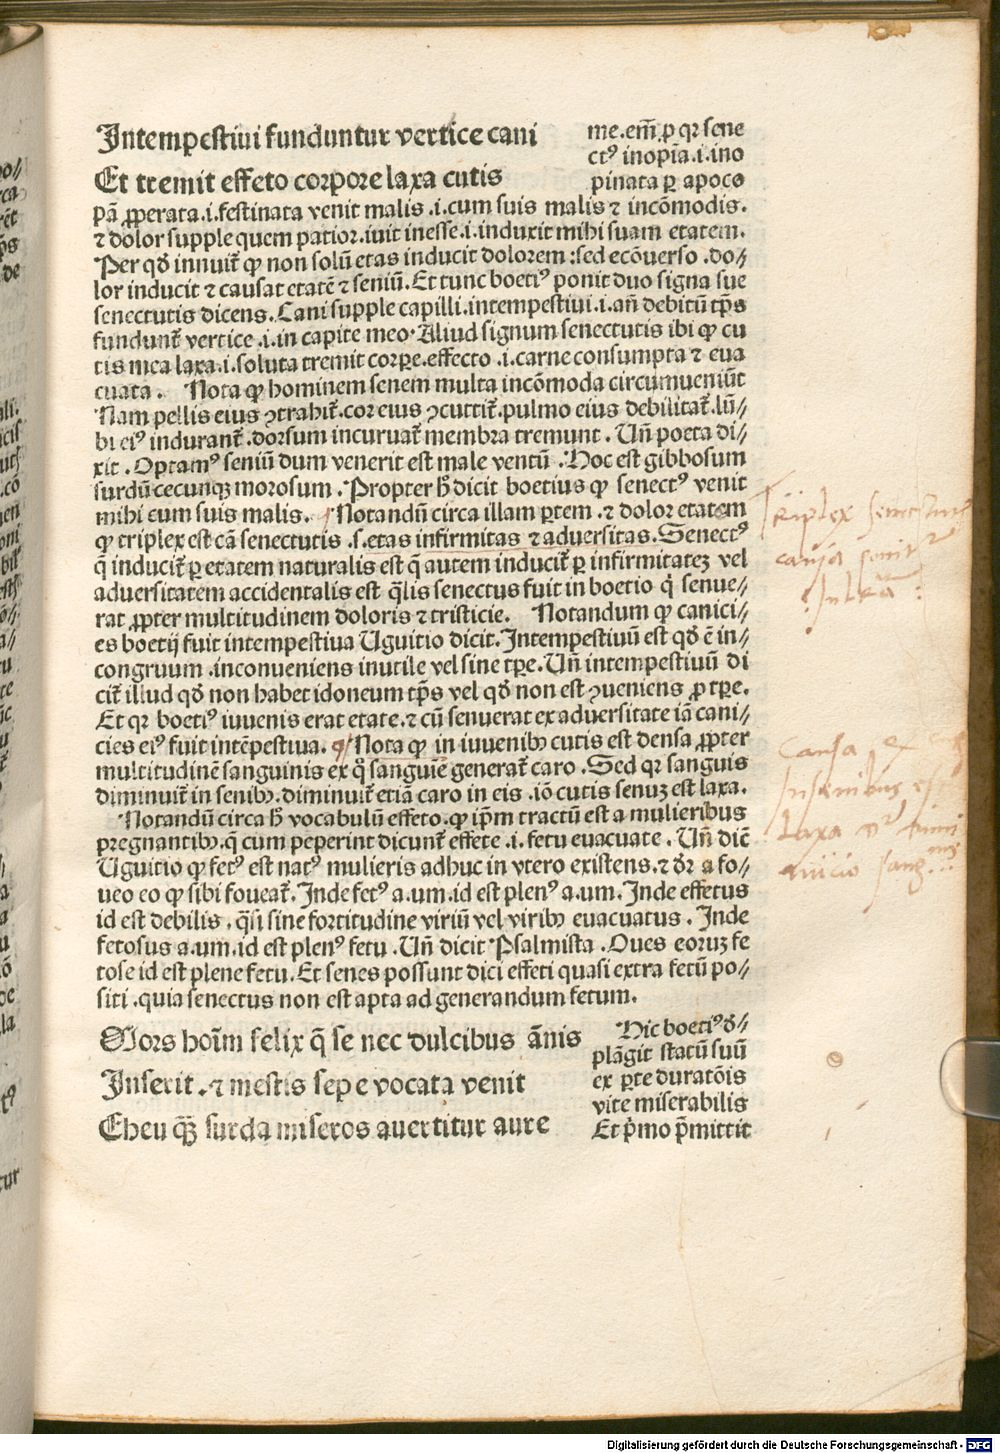 Intempestiui funduntur vertice cani
Et tremit effeto corpore laxa cutis
me.em̄.p qr sene
ctꝰ inopīa.i.ino
pinata ꝑ apoco
pā ꝓperata.i.festinata venit malis .i.cum suis malis ⁊ incōmodis.
⁊ dolor supple quem patior.iuit inesse.i.induxit mihi suam etatem.
Per qđ innuit̄ ꝙ non solū etas inducit dolorem:sed ecōuerso .do⸗
lor inducit ⁊ causat etatē ⁊ seniū.Et tunc boetiꝰ ponit duo signa sue
senectutis dicens.Cani supple capilli.intempestiui.i.añ debitū tp̄s
fundunt̄ vertice .i.in capite meo.Aliud signum senectutis ibi ꝙ cu
tis mea laxa.i.soluta tremit corꝑe.effecto .i.carne consumpta ⁊ eua
cuata. Nota ꝙ hominem senem multa incōmoda circumueniūt
Nam pellis eius ꝯtrahit̄.cor eius ꝯcutit̄.pulmo eius debilitat̄.lū⸗
bi eiꝰ indurant̄.dorsum incuruat̄ membra tremunt. Uñ poeta di⸗
xit.Optamꝰ seniū dum venerit est male ventū .Hoc est gibbosum
surdū cecunqꝫ morosum.Propter ħ dicit boetius ꝙ senectꝰ venit
mihi cum suis malis. Notandū circa illam ꝑtem.⁊ dolor etatem
ꝙ triplex est cā senectutis .s.etas infirmitas ⁊ aduersitas.Senectꝰ
q̄ inducit̄ ꝑ etatem naturalis est q̄ autem inducit̄ ꝑ infirmitatez vel
aduersitatem accidentalis est q̄lis senectus fuit in boetio q̇ senue⸗
rat ꝓpter multitudinem doloris ⁊ tristicie. Notandum ꝙ canici⸗
es boetij fuit intempestiua Uguitio dicit.Intempestiuū est qđ ē in⸗
congruum .inconueniens inutile vel sine tꝑe.Uñ intempestiuū di
cit̄ illud qđ non habet idoneum tp̄s vel qđ non est ꝯueniens ꝓ tꝑe.
Et qr boetiꝰ iuuenis erat etate.⁊ cū senuerat ex aduersitate iā cani⸗
cies eiꝰ fuit intēpestiua. Nota ꝙ in iuuenibꝫ cutis est densa ꝓpter
multitudinē sanguinis ex q̊ sanguie generat̄ caro .Sed qr sanguis
diminuit̄ in senibꝫ.diminuit̄ etiā caro in eis .iō cutis senuz est laxa.
Notandū circa ħ vocabulū effeto.ꝙ ip̄m tractū est a mulieribus
pregnantibꝫ.q̄ cum peperint dicunt̄ effete .i.fetu euacuate .Uñ dic̄
Uguitio ꝙ fetꝰ est natꝰ mulieris adhuc in vtero existens.⁊ đr a fo⸗
ueo eo ꝙ sibi foueat̄.Inde fetꝰ a.um.id est plenꝰ a.um.Inde effetus
id est debilis .q̄si sine fortitudine viriū vel viribꝫ euacuatus. Inde
fetosus a.um.id est plenꝰ fetu .Uñ dicit Psalmista .Oues eoruz fe
tose id est plene fetu.Et senes possunt dici effeti quasi extra fetū po⸗
siti .quia senectus non est apta ad generandum fetum.
Mors hoīm felix q̄ se nec dulcibus ānis
Inserit.⁊ mestis sepe vocata venit
Eheu q̄ꝫ surda miseros auertitur aure
Hic boetiꝰ đ⸗
plāgit statū suū
ex ꝑte duratōis
vite miserabilis
Et p̄mo p̄mittit
Triplex senectutis
causa ponit
Causa ex
In senibus est
laxa
Digitalisierung gefördert durch die Deutsche Forschungsgemeinschaft - DFG